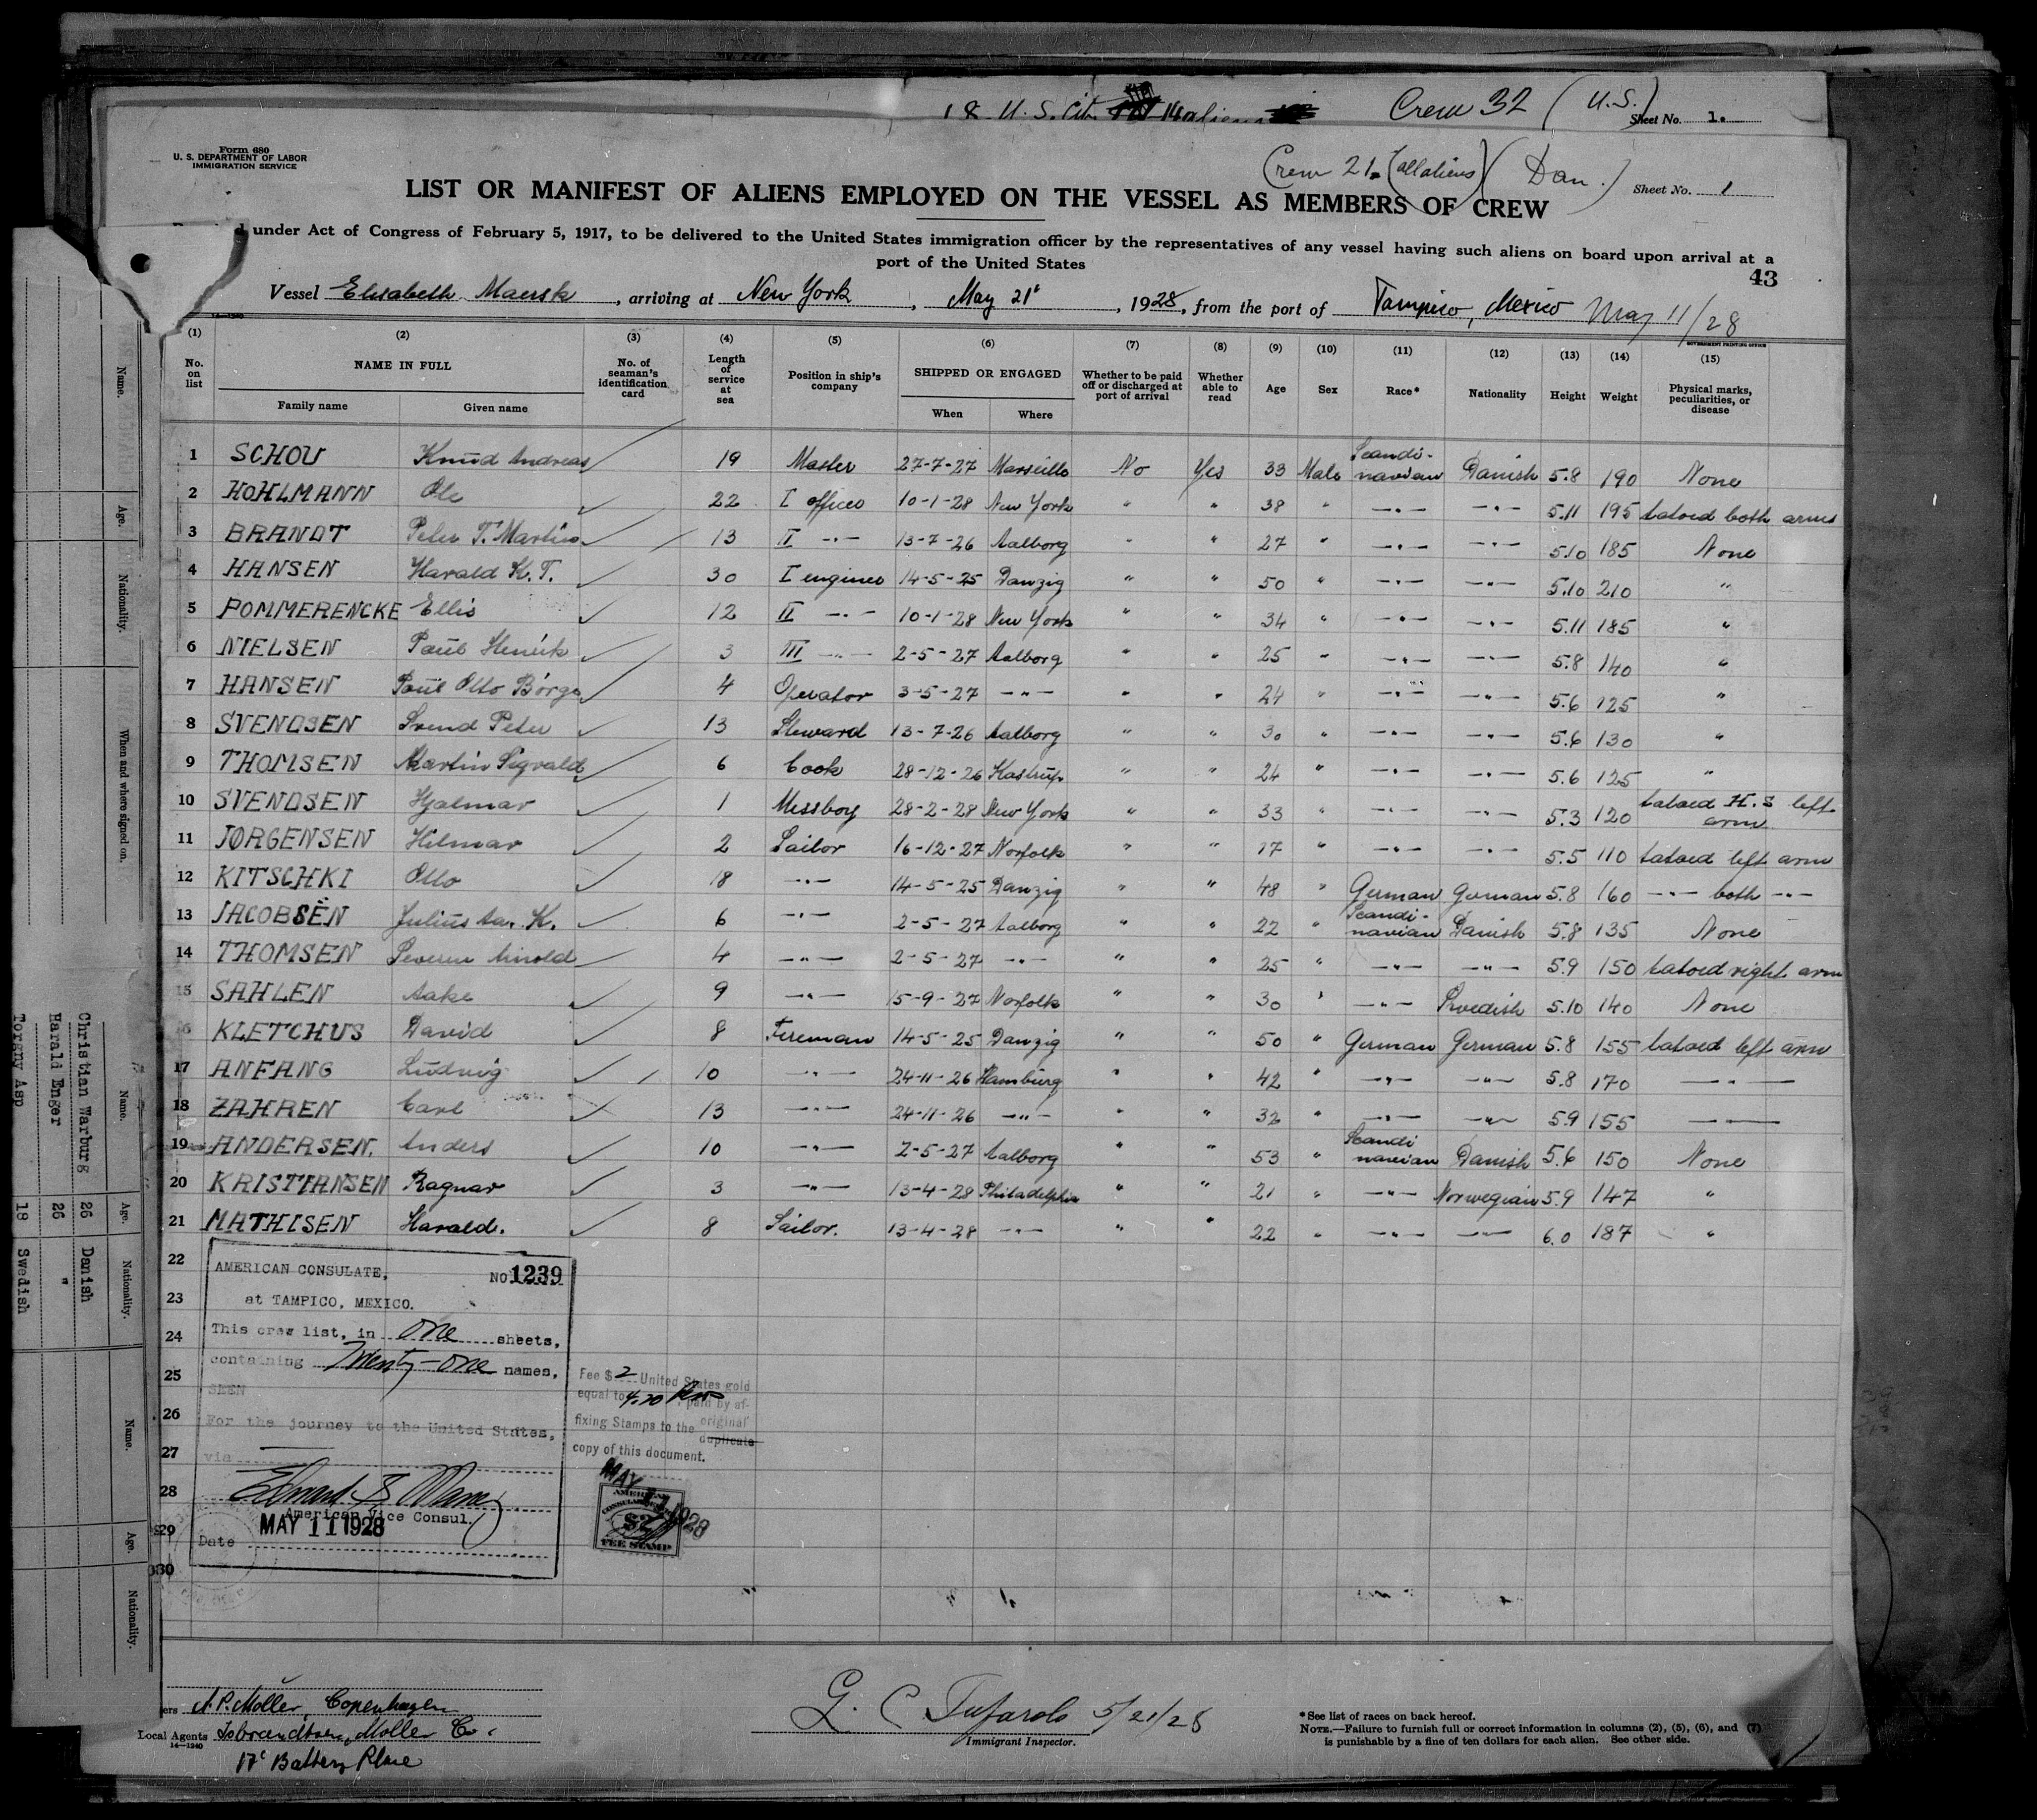 18 U.S. Cit. 14 aliens Crew 32 (U.S.) Sheet No. 1.
Form 680
U. S. DEPARTMENT OF LABOR
IMMIGRATION SERVICE
Crew 21. (all aliens) (Dan.) Sheet No. 1
LIST OR MANIFEST OF ALIENS EMPLOYED ON THE VESSEL AS MEMBERS OF CREW
under Act of Congress of February 5, 1917, to be delivered to the United States immigration officer by the representatives of any vessel having such aliens on board upon arrival at a
port of the United States
43
Vessel Elisabeth Maersk, arriving at New York, May 21', 1928, from the port of Tampico, Mexico May 11/28
14—1240
GOVERNMENT PRINTING OFFICE
(1) (2) (3) (4) (5) (6) (7) (8) (9) (10) (11) (12) (13) (14) (15)
No. on list NAME IN FULL No. of seaman's identification card Length of service at sea Position in ship's company SHIPPED OR ENGAGED Whether to be paid off or discharged at port of arrival Whether able to read Age Sex Race* Nationality Height Weight Physical marks, peculiarities, or disease
Family name Given name When Where
1 SCHOU Knud Andreas 19 Master 27-7-27 Marseille No Yes 33 Male Scandi-navian Danish 5.8 190 None
2 HOHLMANN Ole 22 I officer 10-1-28 New York " " 38 " —"— —"— 5.11 195 tatoed both arms
3 BRANDT Peter T. Martin 13 II —"— 13-7-26 Aalborg " " 27 " —"— —"— 5.10 185 None
4 HANSEN Harald K.T. 30 I engineer 14-5-25 Danzig " " 50 " —"— —"— 5.10 210 "
5 POMMERENCKE Ellis 12 II —"— 10-1-28 New York " " 34 " —"— —"— 5.11 185 "
6 NIELSEN Paul Henrik 3 III —"— 2-5-27 Aalborg " " 25 " —"— —"— 5.8 140 "
7 HANSEN Poul Otto Börge 4 Operator 3-5-27 —"— " " 24 " —"— —"— 5.6 125 "
8 SVENDSEN Svend Peter 13 Steward 13-7-26 Aalborg " " 30 " —"— —"— 5.6 130 "
9 THOMSEN Martin Sigvald 6 Cook 28-12-26 Kastrup " " 24 " —"— —"— 5.6 125 "
10 SVENDSEN Hjalmar 1 Messboy 28-2-28 New York " " 33 " —"— —"— 5.3 120 tatoed H.S left arm
11 JØRGENSEN Hilmar 2 Sailor 16-12-27 Norfolk " " 17 " —"— —"— 5.5 110 tatoed left arm
12 KITSCHKI Otto 18 —"— 14-5-25 Danzig " " 48 " German German 5.8 160 —"— both —"—
13 JACOBSEN Julius Aa. K. 6 —"— 2-5-27 Aalborg " " 22 " Scandi-navian Danish 5.8 135 None
14 THOMSEN Severin Arnold 4 —"— 2-5-27 —"— " " 25 " —"— —"— 5.9 150 tatoed right arm
15 SAHLEN Aake 9 —"— 15-9-27 Norfolk " " 30 " —"— Swedish 5.10 140 None
16 KLETCHUS David 8 Fireman 14-5-25 Danzig " " 50 " German German 5.8 155 tatoed left arm
17 ANFANG Ludwig 10 —"— 24-11-26 Hamburg " " 42 " —"— —"— 5.8 170 —"—
18 ZAHREN Carl 13 —"— 24-11-26 —"— " " 32 " —"— —"— 5.9 155 —"—
19 ANDERSEN. Anders 10 —"— 2-5-27 Aalborg " " 53 " Scandinavian Danish 5.6 150 None
20 KRISTIANSEN Ragnar 3 —"— 13-4-28 Philadelphia " " 21 " —"— Norwegian 5.9 147 "
21 MATHISEN Harald. 8 Sailor. 13-4-28 —"— " " 22 " —"— —"— 6.0 187 "
22
23
24
25
26
27
28
29
30
AMERICAN CONSULATE, NO 1239
at TAMPICO, MEXICO.
This crew list, in one sheets,
containing Twenty-one names,
SEEN
For the journey to the United States,
via
American Vice Consul.
Date MAY 11 1928
Fee $ 2 United States gold
equal to 4.20 paid by af-
fixing Stamps to the original
duplicate
copy of this document.
MAY 11 1928
AMERICAN
CONSULAR SERVICE
$2
FEE STAMP
A.P. Möller, Copenhagen
Local Agents Isbrandtsen, Moller Co.
14—1240
17' Battery Place
G. C. Tufarolo 5/21/28
Immigrant Inspector.
*See list of races on back hereof.
NOTE.—Failure to furnish full or correct information in columns (2), (5), (6), and (7)
is punishable by a fine of ten dollars for each alien. See other side.
Name. Age. Nationality. When and where signed on.
Name. Age. Nationality. Name. Age. Nationality.
Christian Warburg 26 Danish
Harald Enger 26 "
Torgny Asp 18 Swedish